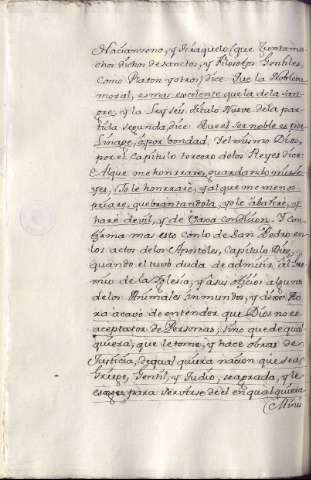 Nacianseno, y Friaquelo (que Contama
chos dichos de sanctos, y Filosofos Gentiles,
como Platon y otros) dice que la Nobleza
moral, es mas excelente que la de la san-
gre, y la Ley seis, titulo Nueve de la par-
tida segunda, dice. Que el ser noble es por
Linage, ó por bondad. Y el mismo Dios,
por el Capitulo tercero de los Reyes dice.
Al que me honrrare, guardando mis Le
yes, Yo le honrrare, y al que me menos
priare, quebrantandola, yo le abatiré, y
haré devil, y de baxa condicion. Y Con
firma mas esto con lo de San Pedro en
los actos de los Apostoles, Capitulo Diez,
quando el tuvo duda de admitir al Gre
mio de la Iglesia, y a sus oficios alguna
de los Animales inmundos, y dixo: Ao
ra acavo de entender que Dios no es
aceptador de Personas, sino que de qual
quiera, que le tema, y hace obras de
Justicia, de qual quiera nacion que sea
Griego, Gentil, y Judio, se agrada, y le
escoge para servirse de él en qualquiera
Minis